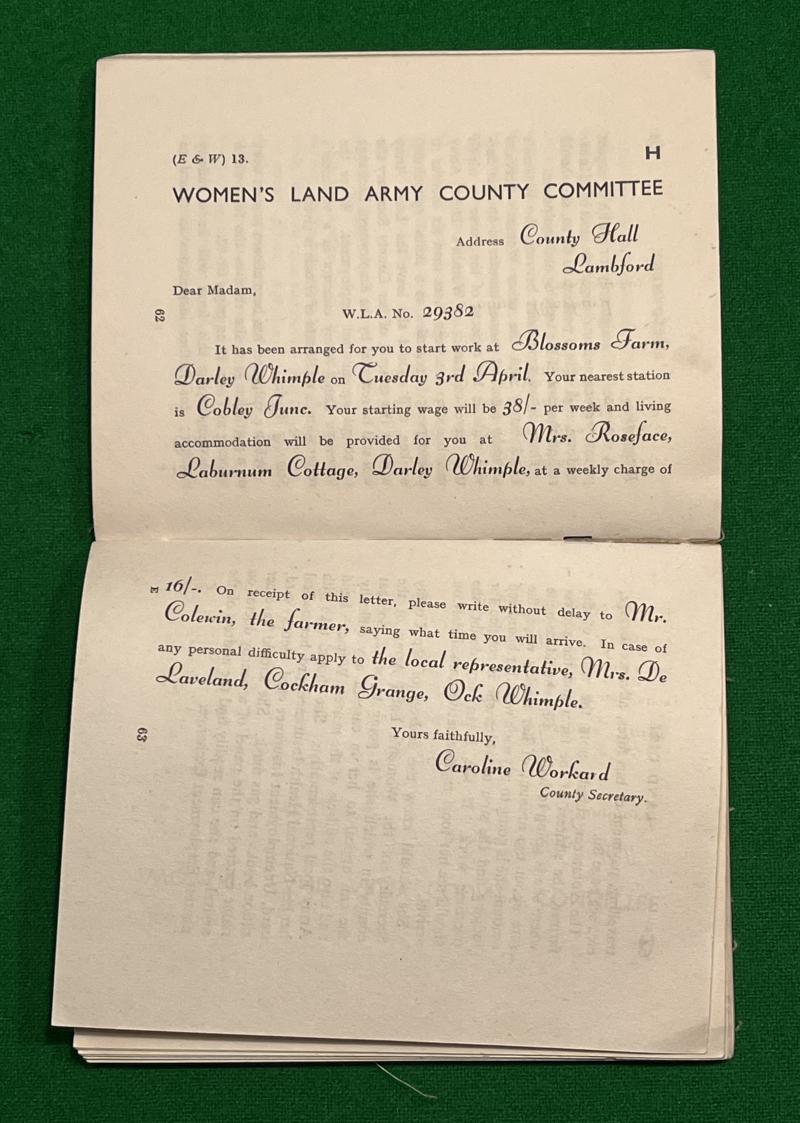 (E & W) 13.
H
WOMEN'S LAND ARMY COUNTY COMMITTEE
Address County Hall
Lambford
Dear Madam,
62
W.L.A. No. 29382
It has been arranged for you to start work at Blossoms Farm,
Darley Whimple on Tuesday 3rd April. Your nearest station
is Cobley Junc. Your starting wage will be 38/- per week and living
accommodation will be provided for you at Mrs. Roseface,
Laburnum Cottage, Darley Whimple, at a weekly charge of
E 16/-. On receipt of this letter, please write without delay to Mr.
Colewin, the farmer, saying what time you will arrive. In case of
any personal difficulty apply to the local representative, Mrs. De
Laveland, Cockham Grange, Ock Whimple.
63
Yours faithfully,
Caroline Workard
County Secretary.